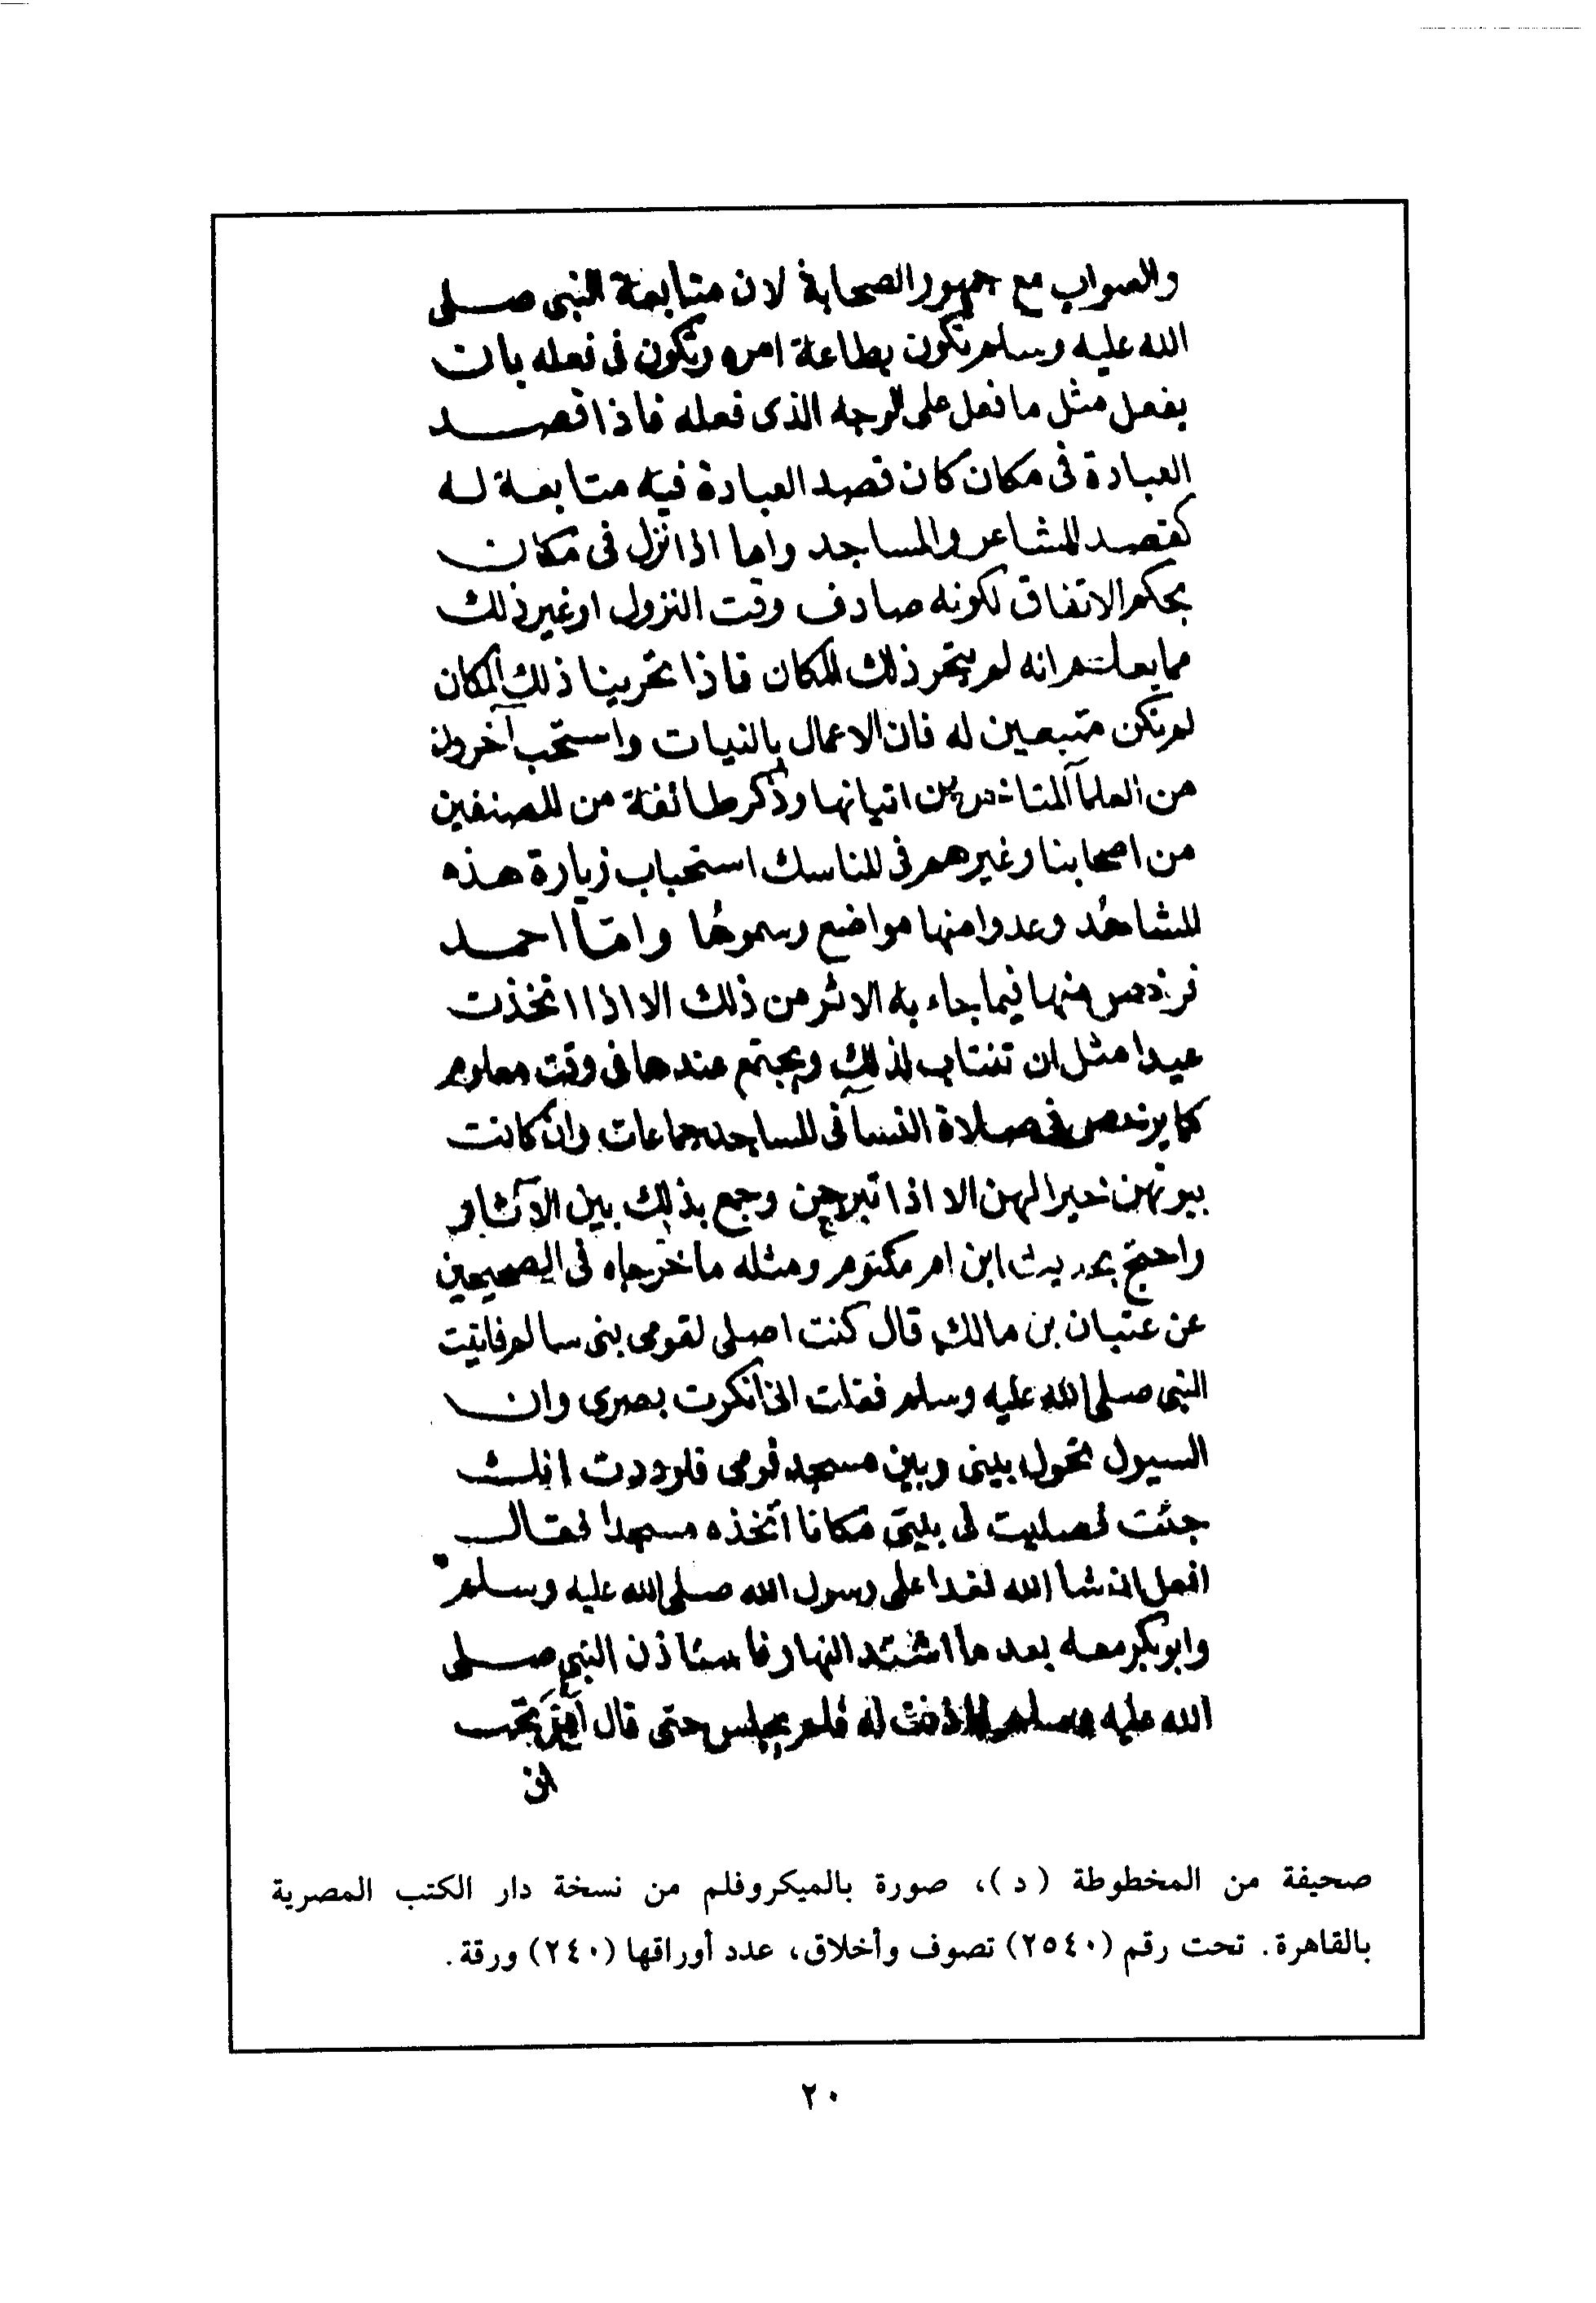 والصواب مع جمهور الصحابة لان متابعة النبى صلى
الله عليه وسلم تكون بطاعة امره وتكون فى فعله بان
يفعل مثل ما فعل على الوجه الذى فعله فاذا قصد
العبادة فى مكان كان قصد العبادة فيه متابعة له
كقصد المشاعر والمساجد واما اذا نزل فى مكان
بحكم الاتفاق لكونه صادف وقت النزول او غير ذلك
مما يعلم انه لم يتحر ذلك المكان فاذا تحرينا ذلك المكان
لم نكن متبعين له فان الاعمال بالنيات واستحب آخرون
من العلمآ المتاخرين اتيانها وذكر طائفة من المصنفين
من اصحابنا وغيرهم فى المناسك استحباب زيارة هذه
المشاهد وعدوا منها مواضع وسموها وامّا احمد
فرخص منها فيما جاء به الاثر من ذلك الا اذا اتخذت
عيدا مثل ان تنتاب لذلك ويجتمع عندها فى وقت معلوم
كما يرخص فى صلاة النسآ فى المساجد جماعات وان كانت
بيوتهن خيرا لهن الا اذا تبرجن وجمع بذلك بين الآثار
واحتج بحديث ابن ام مكتوم ومثله ما خرجاه فى الصحيحين
عن عتبان بن مالك قال كنت اصلى لقومى بنى سالم فاتيت
النبى صلى الله عليه وسلم فقلت انى انكرت بصرى وان
السيول تحول بينى وبين مسجد قومى فلوددت انك
جئت فصليت فى بيتى مكانا اتخذه مسجدا فقال
افعل ان شا الله فغدا على رسول الله صلى الله عليه وسلم
وابو بكر معه بعد ما اشتد النهار فاستاذن النبى صلى
الله عليه وسلم فاذنت له فلم يجلس حتى قال اين تحب
ان
صحيفة من المخطوطة (د)، صورة بالميكروفلم من نسخة دار الكتب المصرية
بالقاهرة. تحت رقم (٢٥٤٠) تصوف وأخلاق، عدد أوراقها (٢٤٠) ورقة.
٢٠